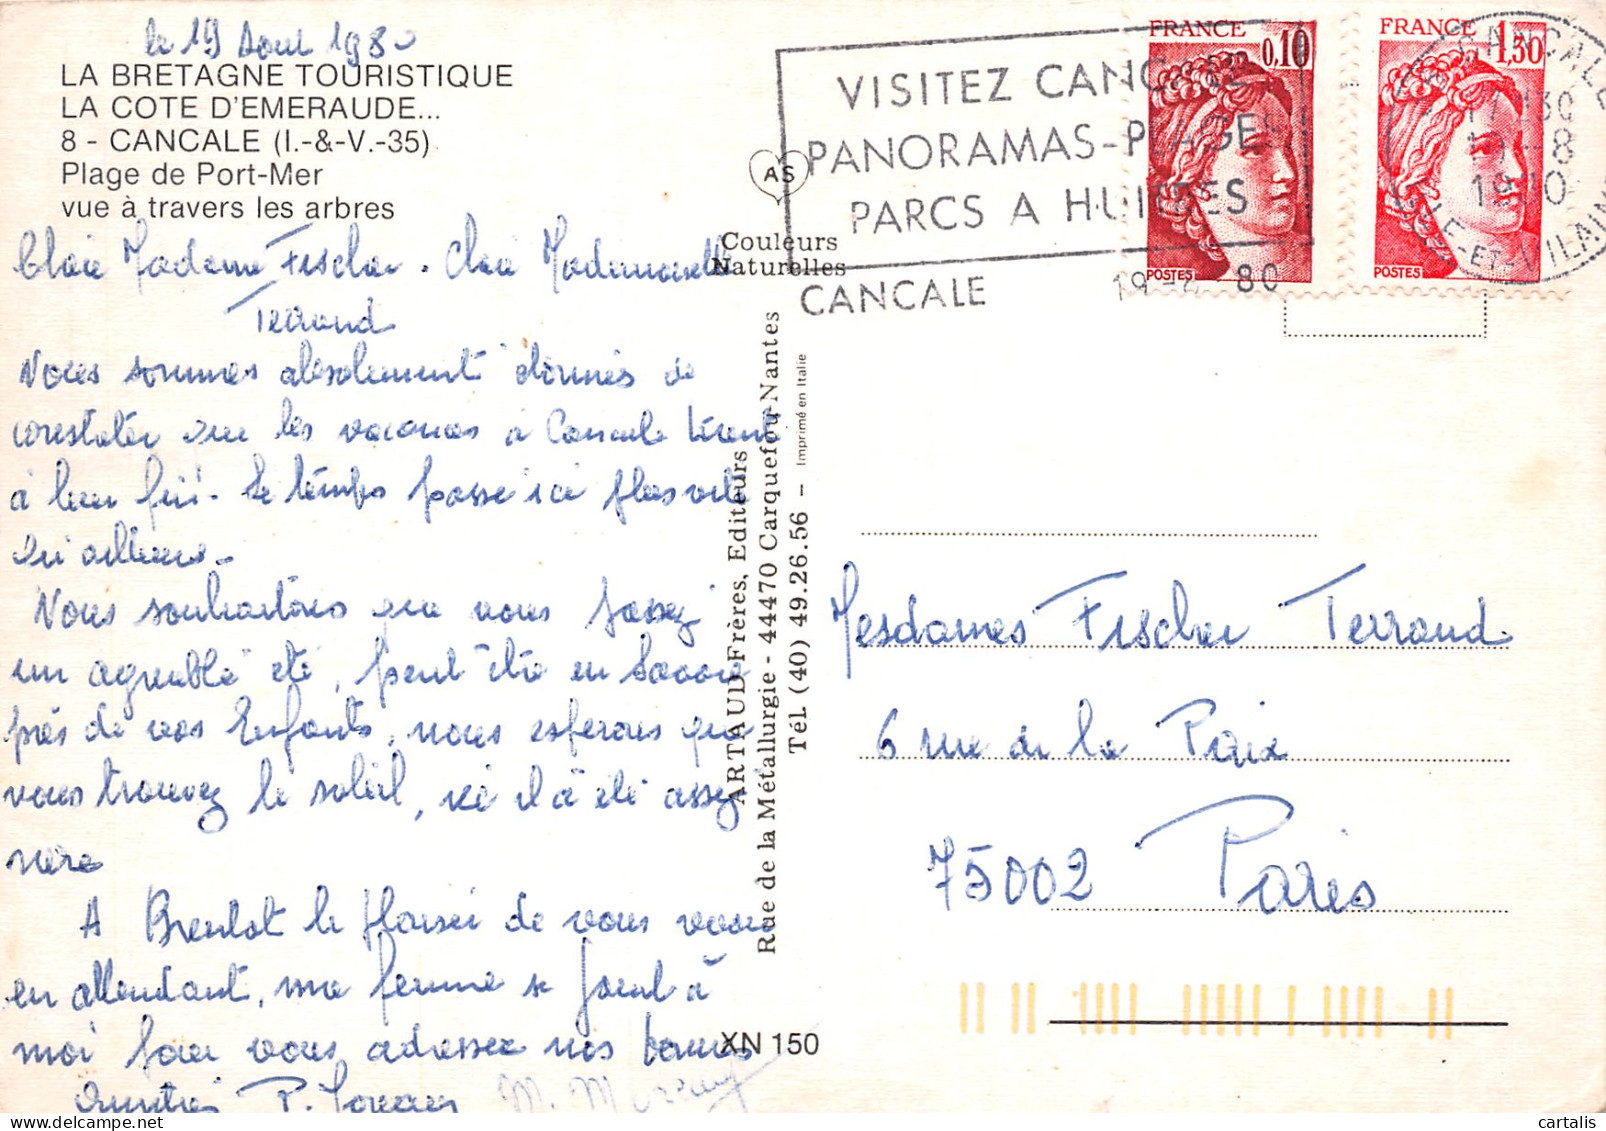 le 19 Aout 1980
LA BRETAGNE TOURISTIQUE
LA COTE D'EMERAUDE...
8 - CANCALE (I.-&-V.-35)
Plage de Port-Mer
vue à travers les arbres
Chère Madame Fischer. Chère Mademoiselle
Terrand
Nous sommes absolument étonnés de
constater que les vacances à Cancale tirent
à leur fin. Le temps passe ici plus vite
qu'ailleurs.
Nous souhaitons que vous passez
un agréable été, peut être en Savoie
près de vos Enfants, nous espérons que
vous trouvez le soleil, ici il a été assez
rare
A Bientot le plaisir de vous revoir
en attendant, ma femme se joint à
moi pour vous adresser nos bonnes
Amitiés P.
AS
Couleurs
Naturelles
ARTAUD Frères, Editeurs
Rue de la Métallurgie - 44470 Carquefou-Nantes
Tél. (40) 49.26.56 – Imprimé en Italie
XN 150
VISITEZ CANCALE
PANORAMAS-PLAGES
PARCS A HUITRES
CANCALE
19-8 80
FRANCE
0,10
POSTES
FRANCE
1,30
POSTES
CANCALE
17H30
19-8
1980
ILLE-ET-VILAINE
Mesdames Fischer Terrand
6 rue de la Paix
75002 Paris
cartalis